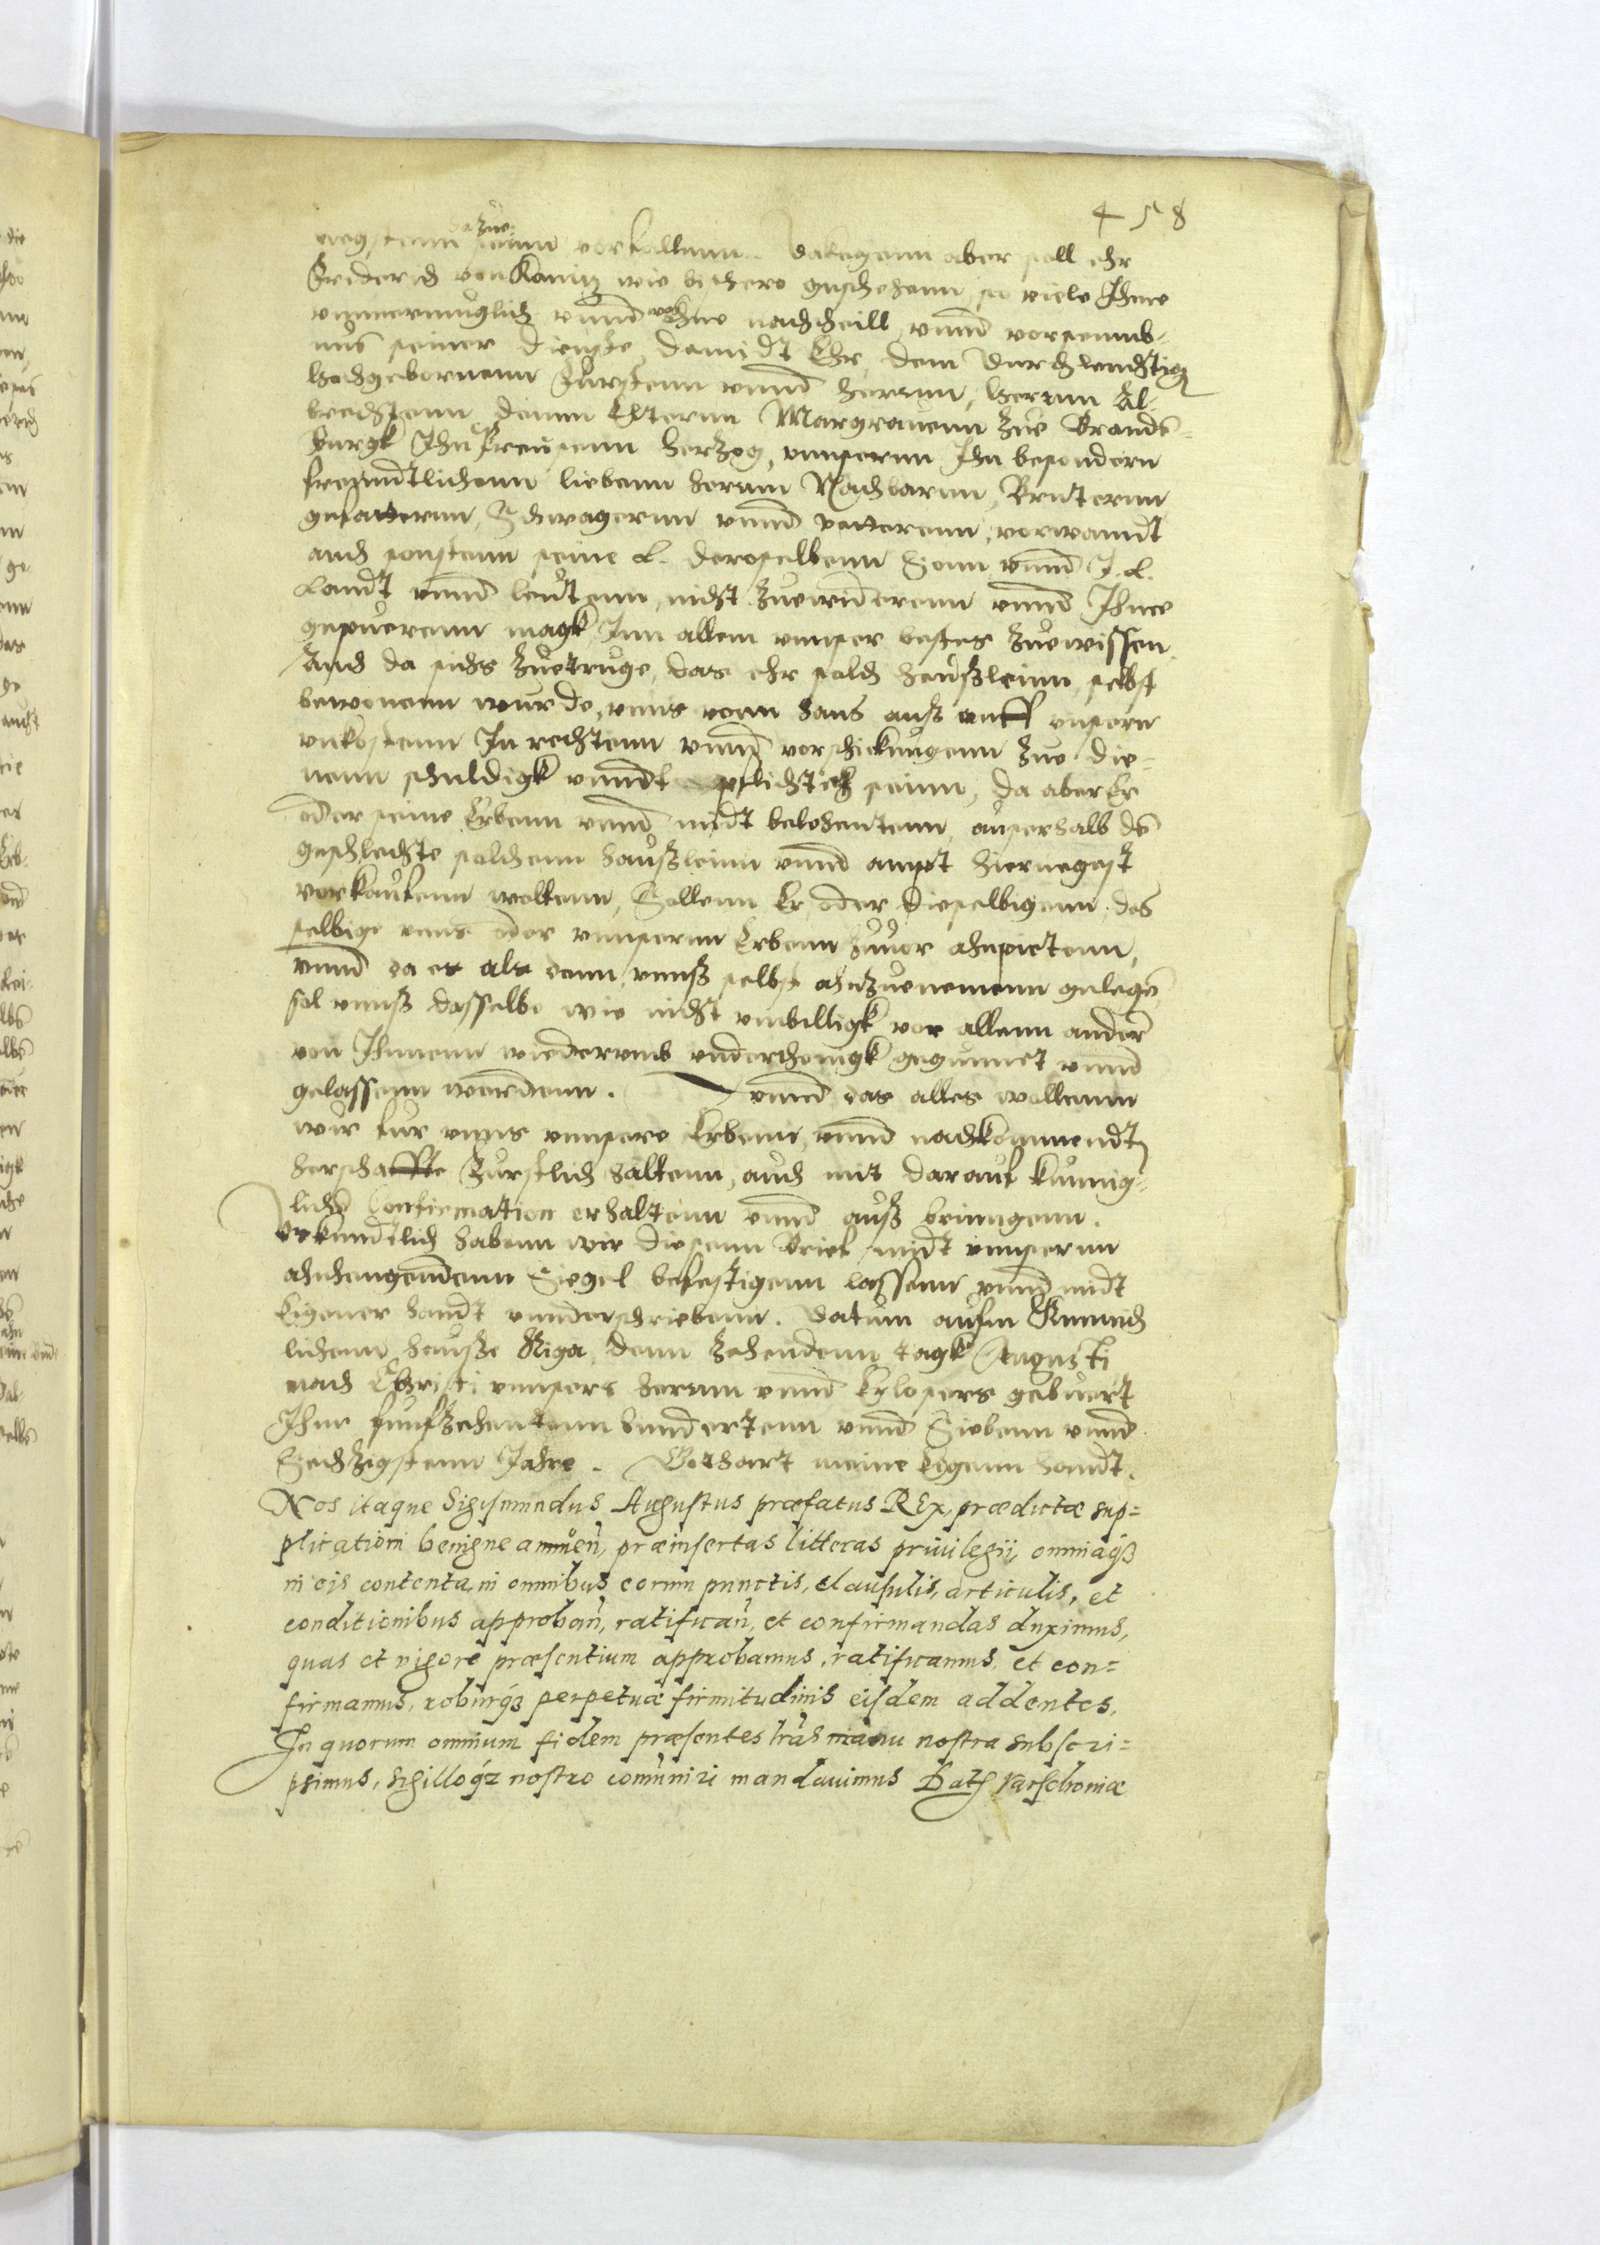 458
dazue
negstenn seinn vorfallenn. Dakegenn aber soll ehr
Friderich von Kanitz wie bishero geschehenn, so viele Ihme
ummermuglich vnnd ohne nachtheill vnnd vorseumb-
nus seiner dienste, damidt Ehr, dem Durchleuchtig
Hochgebornenn Fürstenn vnnd herrnn, Herrnn Al-
brechtenn denn Elternn Margrauenn zue Brandē-
burgk Inn Preusenn herzog, vnnsernn Inn besondern
freundtlichenn liebenn herrnn Nachbarnn, Brudernn
geuatternn, Schwagernn vnnd vetterenn, vorwandt
auch sonstenn seine L. deroselbenn Sonn vnnd J. L.
Landt vnnd leutenn, nicht zuwiderenn vnnd Ihme
gepuerenn magk, Inn allem vnnser bestes zuewissen.
Auch da sichs zuetruge, das ehr solch heußlein, selbst
bewonenn wurde, vnns vonn haus auß auff vnsern
vnkostenn In rechtenn vnnd vorschickungenn zue die-
nenn schuldigk vnndt pflichtigk seinn, da aber Er
oder seine Erbenn vnnd midt belehentenn, auserhalb dē
geschlechte solchenn heußleinn vnnd ampt hiernegst
vorkaufenn woltenn, Sollenn Er oder dieselbigenn, das
selbige vnns oder vnnsernn Erbenn zuuor ahnpietenn,
vnnd da es als dann vnnß selbst ahnzuenemenn gelegē
sol vnnß dasselbe wie nicht vnbilligk vor allenn anderē
von Ihnenn wiederumb vnderthenigk gegunnet vnnd
gelassenn werdenn. Vnnd das alles wollenn
wir fur vnns vnnsere Erbenn, vnnd nachkommendt
herschaffte Fürstlich haltenn, auch mit darauf kunnig-
liche Confirmation erhaltenn vnnd auß bringenn.
Vrkundtlich habenn wir diesenn Brief midt vnnsernn
ahnhengendenn Siegel befestigenn lassenn vnnd midt
Eigener handt vnnderschriebenn. Datum aufm Kunnich
lichenn hauße Riga, denn zehendenn tagk Augusti
nach Christi vnnsers herrnn vnnd Erlosers geburt
Ihm funfzehentenn hundertenn vnnd Siebenn vnnd
Sechzigstenn Jahre. Gothart meine Eigenn handt.
Nos itaque Sigismundus Augustus præfatus REx, prædictæ sup=
plicationi benigne annuen̄, præinsertas litteras priuilegii, omniaqȝ
in eis contenta, in omnibus eorum punctis, clausulis, articulis, et
conditionibus approban̄, ratifican̄, et confirmandas duximus,
quas et vigore præsentium approbamus, ratificamus, et con=
firmamus, roburqȝ perpetuæ firmitudinis eisdem addentes.
In quorum omnium fidem præsentes lr̄as manu nostra subscri=
psimus, Sigilloqȝ nostro com̄uniri mandauimus Datȝ Varschouiæ